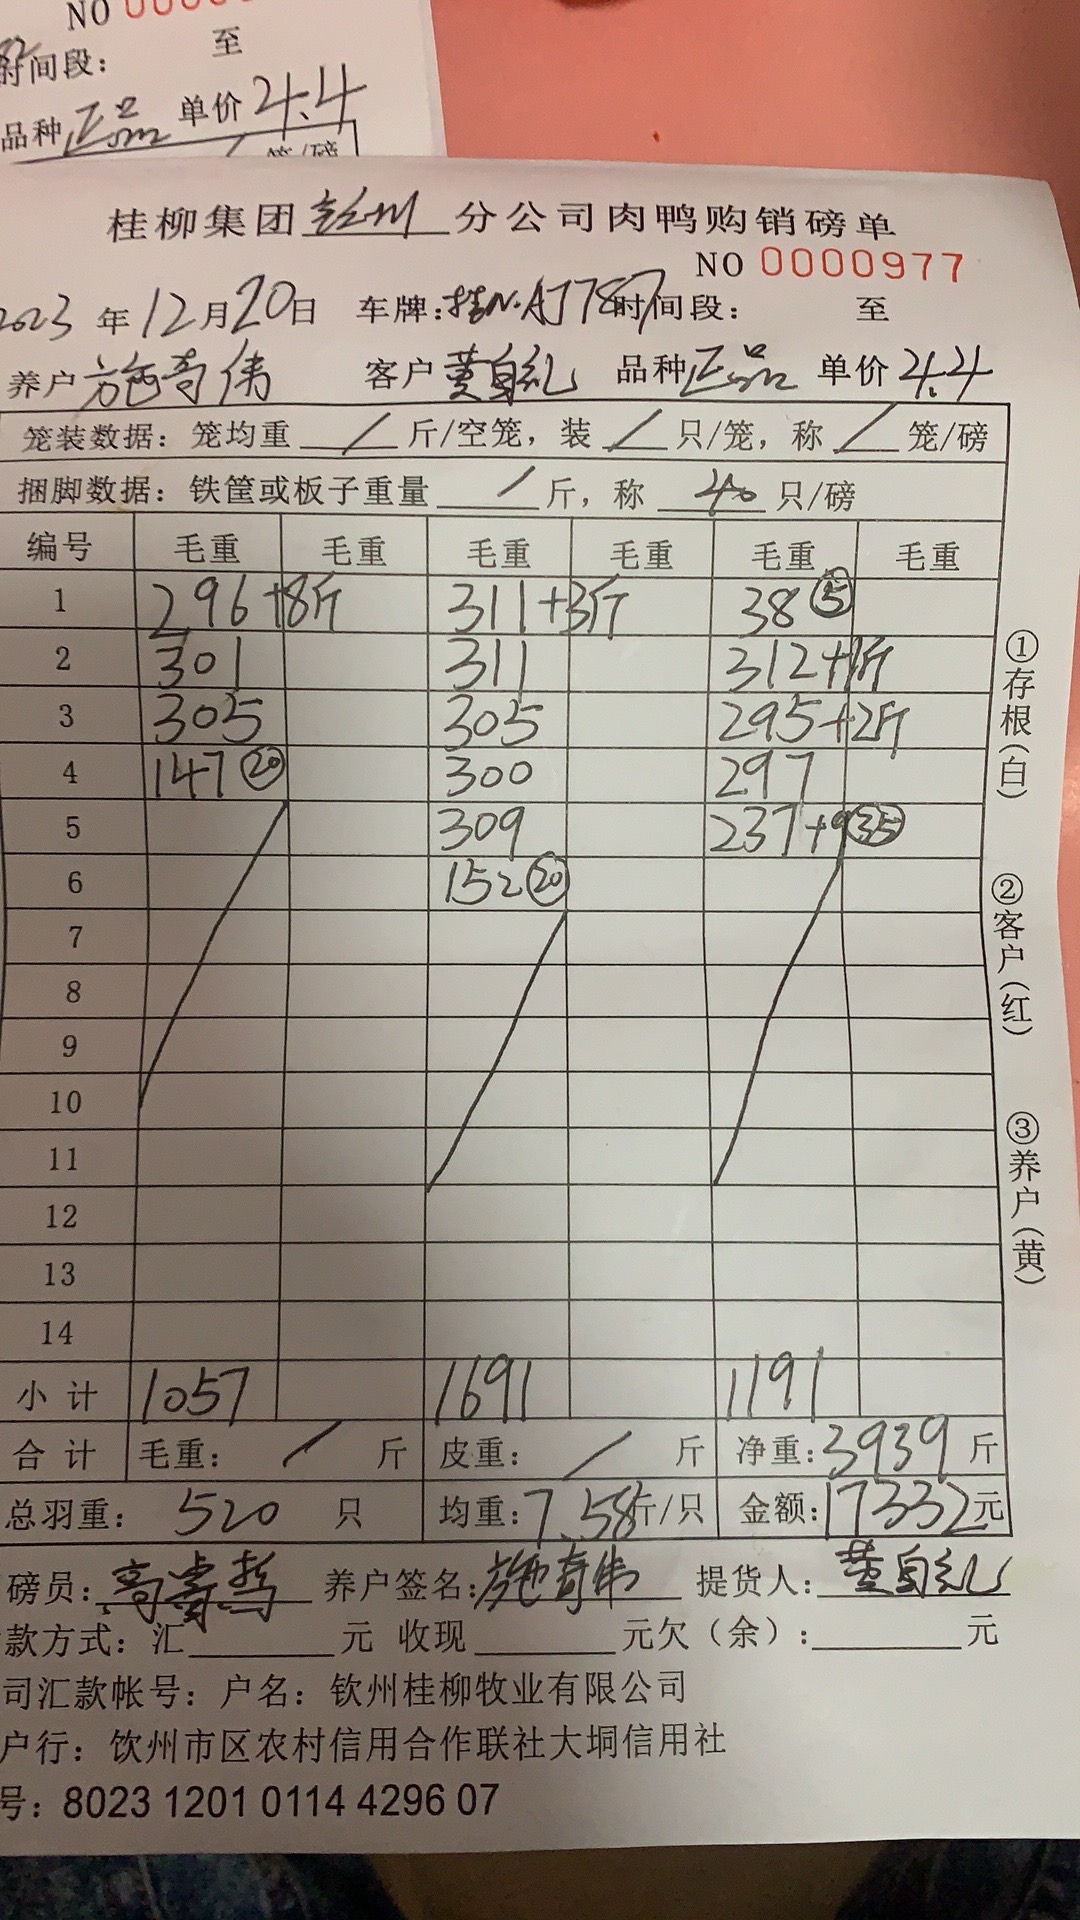 NO 00000
时间段： 至
品种 正品 单价 4.4
笼/磅
桂柳集团 分公司肉鸭购销磅单
NO 0000977
2023 年 12 月 20 日 车牌：桂N·AJ787 时间段： 至
养户 施奇伟 客户 黄自礼 品种 正品 单价 4.4
笼装数据：笼均重 / 斤/空笼，装 / 只/笼，称 / 笼/磅
捆脚数据：铁筐或板子重量 / 斤，称 40 只/磅
编号 毛重 毛重 毛重 毛重 毛重 毛重
1 296+8斤 311+3斤 38⑤
2 301 311 312+1斤
3 305 305 295+2斤
4 147⑳ 300 297
5 309 237+9㉟
6 152⑳
7
8
9
10
11
12
13
14
小计 1057 1691 1191
合计 毛重： / 斤 皮重： / 斤 净重：3939 斤
总羽重： 520 只 均重：7.58斤/只 金额：17332元
磅员： 养户签名：施奇伟 提货人：黄自礼
款方式：汇 元 收现 元欠（余）： 元
司汇款帐号：户名：钦州桂柳牧业有限公司
户行：钦州市区农村信用合作联社大垌信用社
号：8023 1201 0114 4296 07
①存根（白）
②客户（红）
③养户（黄）